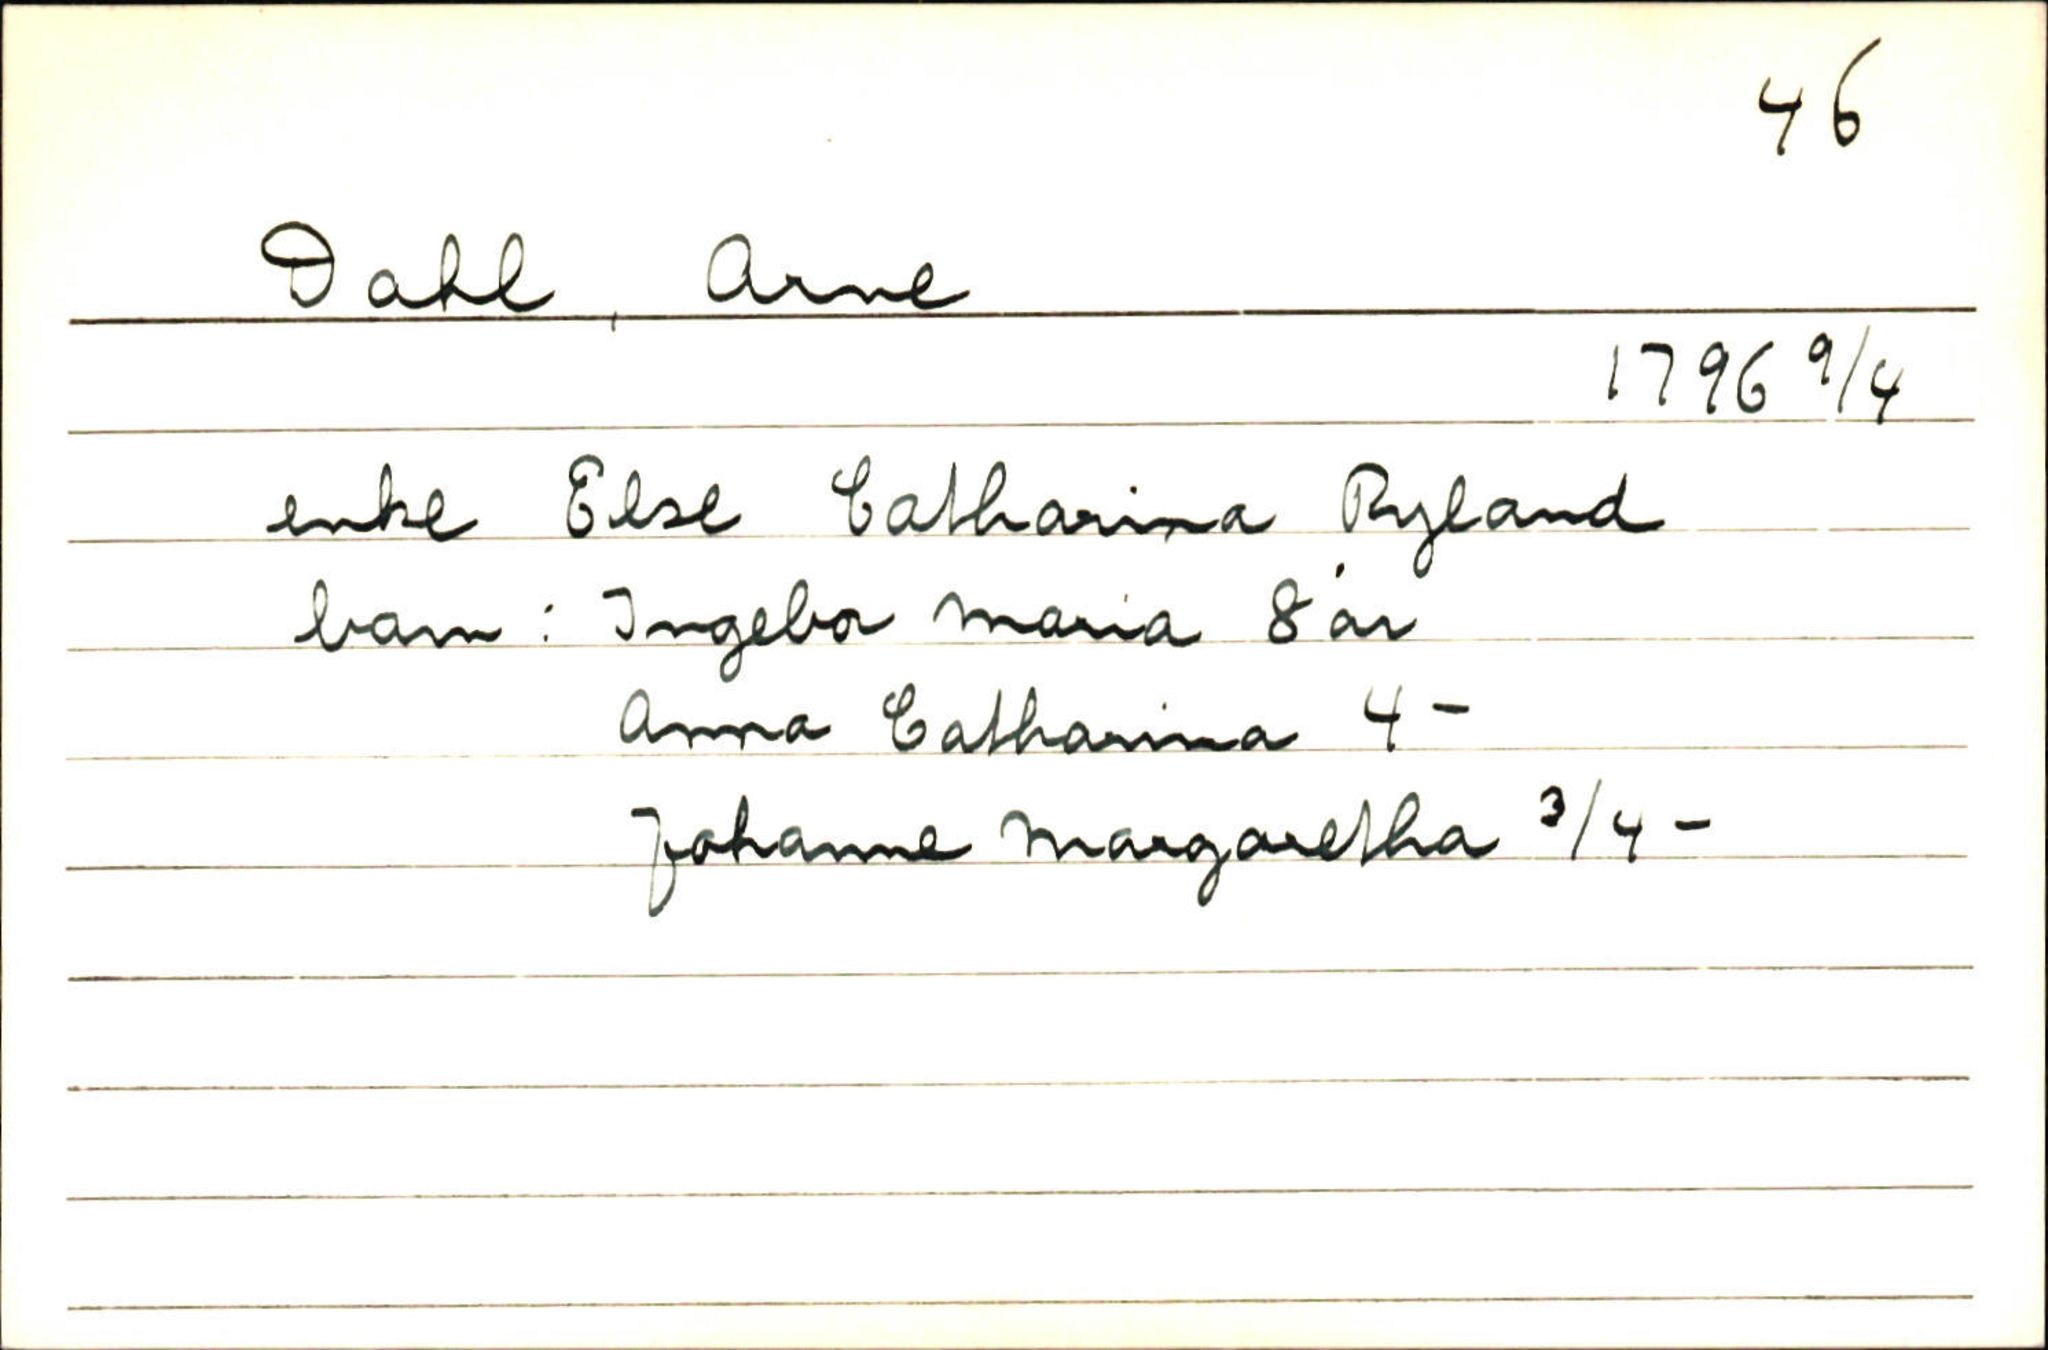 46
Dahl, Arne
1796 9/4
enke Else Catharina Ryland
barn: Ingebor Maria 8 år
Anna Catharina 4 -
Johanne Margaretha 3/4 -